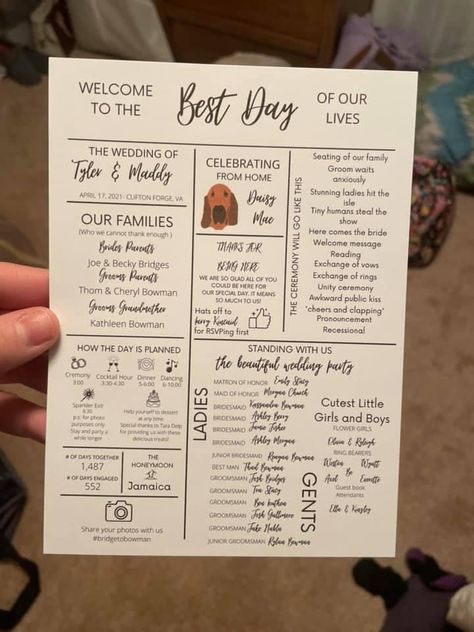 WELCOME
TO THE
Best Day
OF OUR
LIVES
THE WEDDING OF
Tyler & Maddy
APRIL 17, 2021- CLIFTON FORGE, VA
OUR FAMILIES
(Who we cannot thank enough )
Brides Parents
Joe & Becky Bridges
Grooms Parents
Thom & Cheryl Bowman
Grooms Grandmother
Kathleen Bowman
CELEBRATING
FROM HOME
Daisy
Mae
THANKS FOR
BEING HERE
WE ARE SO GLAD ALL OF YOU
COULD BE HERE FOR
OUR SPECIAL DAY. IT MEANS
SO MUCH TO US!
Hats off to
kerry Kincaid
for RSVPing first
THE CEREMONY WILL GO LIKE THIS
Seating of our family
Groom waits
anxiously
Stunning ladies hit the
isle
Tiny humans steal the
show
Here comes the bride
Welcome message
Reading
Exchange of vows
Exchange of rings
Unity ceremony
Awkward public kiss
"cheers and clapping"
Pronouncement
Recessional
HOW THE DAY IS PLANNED
Cremony
3:00
Cocktail Hour
3:30-4:30
Dinner
5-6:00
Dancing
6-10:00
Sparkler Exit
8:30
p.s: for photo
purposes only.
Stay and party a
while longer
Help yourself to dessert
at any time.
Special thanks to Tara Delp
for providing us with these
delicious treats!
# OF DAYS TOGETHER
1,487
# OF DAYS ENGAGED
552
THE
HONEYMOON
Jamaica
Share your photos with us
#bridgetobowman
STANDING WITH US
the beautiful wedding party
LADIES
MATRON OF HONOR Emily Stacy
MAID OF HONOR Morgan Church
BRIDESMAID Kassandra Bowman
BRIDESMAID Ashley Berry
BRIDESMAID Jamie Fisher
BRIDESMAID Ashley Morgan
JUNIOR BRIDESMAID Reagan Bowman
GENTS
BEST MAN Thad Bowman
GROOMSMAN Josh Bridges
GROOMSMAN Tra Stacy
GROOMSMAN Ben
GROOMSMAN Josh
GROOMSMAN Jake
JUNIOR GROOMSMAN Rylan Bowman
Cutest Little
Girls and Boys
FLOWER GIRLS
Olivia & Ryleigh
RING BEARERS
Weston Wyatt
Bo
Axel Everette
Guest book
Attendants
Ella & Kinsley